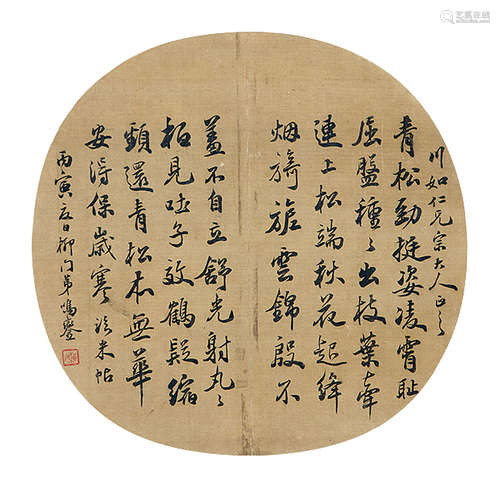 川如仁兄宗大人正之
青松勁挺姿凌霄恥
屈盤種〻出枝葉牽
連上松端秋花起絳
烟旖旎雲錦殷不
羞不自立舒光射丸〻
栢見吐子效鶴疑縮
頸還青松本無華
安得保歲寒 臨米帖
丙寅夏日柳門弟鳴鑾